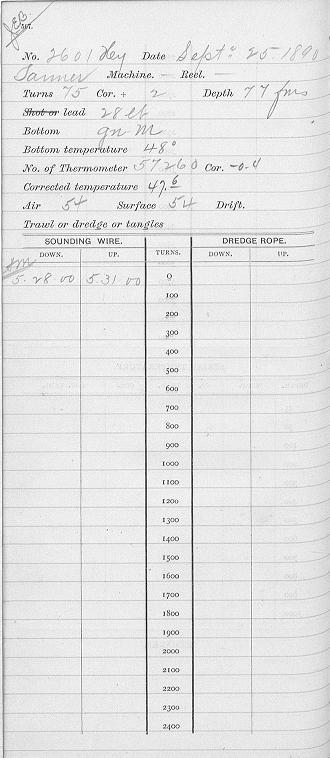 No. 2601 Hy Date Septr 25. 1890
Tanner Machine. — Reel. —
Turns 75 Cor. + 2 Depth 77 fms
Shot or lead 28 lb
Bottom gn M
Bottom temperature 48°
No. of Thermometer 57260 Cor. -0.4
Corrected temperature 47.6
Air 54 Surface 54 Drift.
Trawl or dredge or tangles
SOUNDING WIRE. TURNS. DREDGE ROPE.
DOWN. UP. DOWN. UP.
5.28.00 5.31.00 0
100
200
300
400
500
600
700
800
900
1000
1100
1200
1300
1400
1500
1600
1700
1800
1900
2000
2100
2200
2300
2400